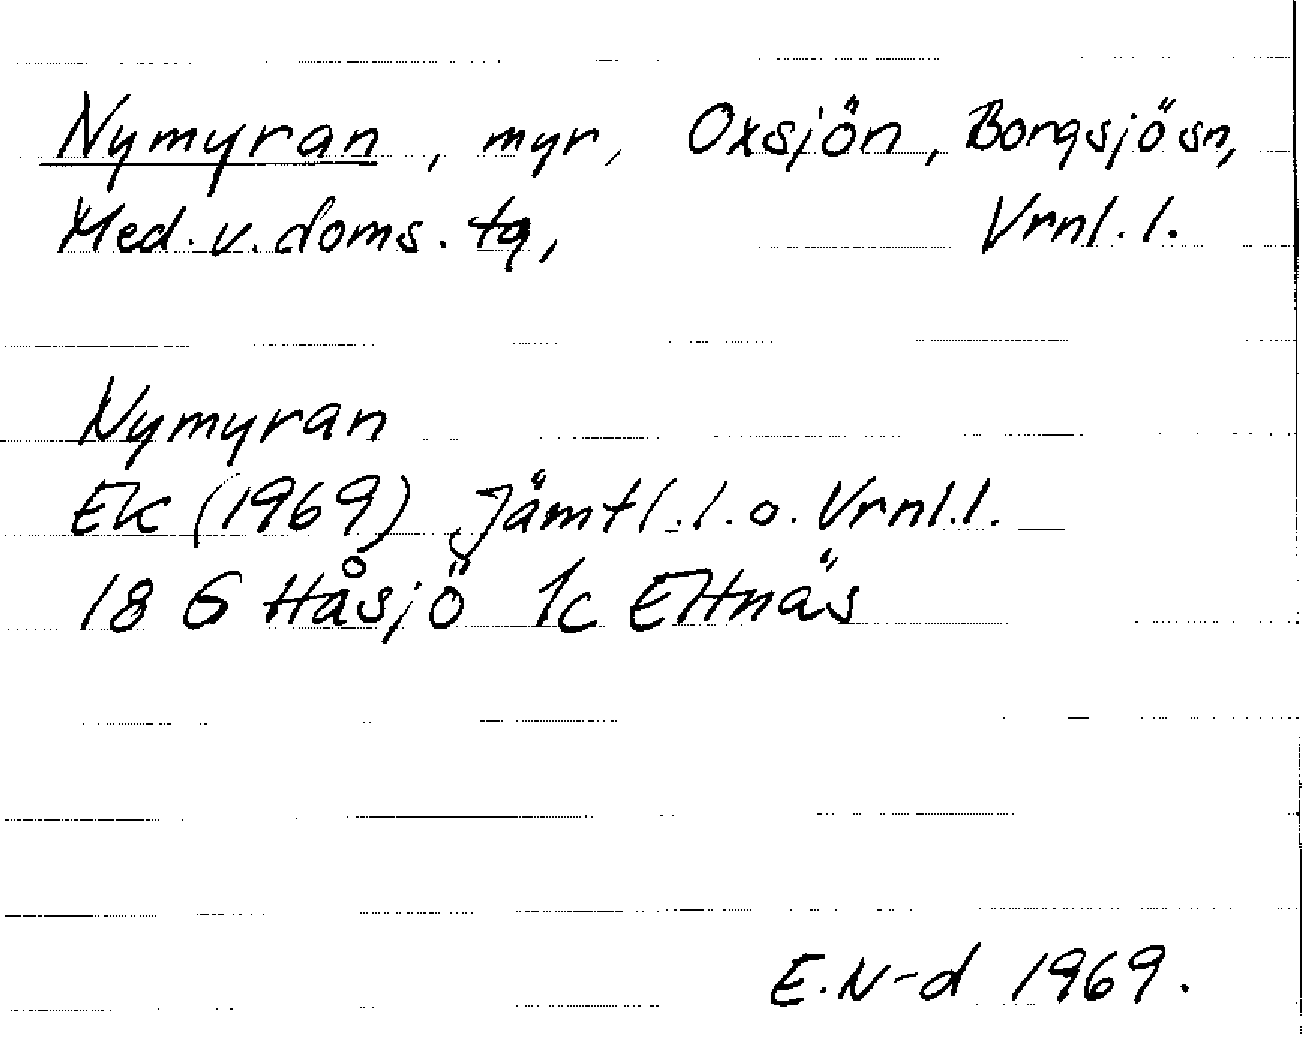 Nymyran, myr, Oxsjön, Borgsjösn,
Med. v. doms. tg, Vrnl. l.
Nymyran
Ek (1969) Jämtl. l. o. Vrnl. l.
18 G Håsjö 1c Ettnäs
E. N-d 1969.